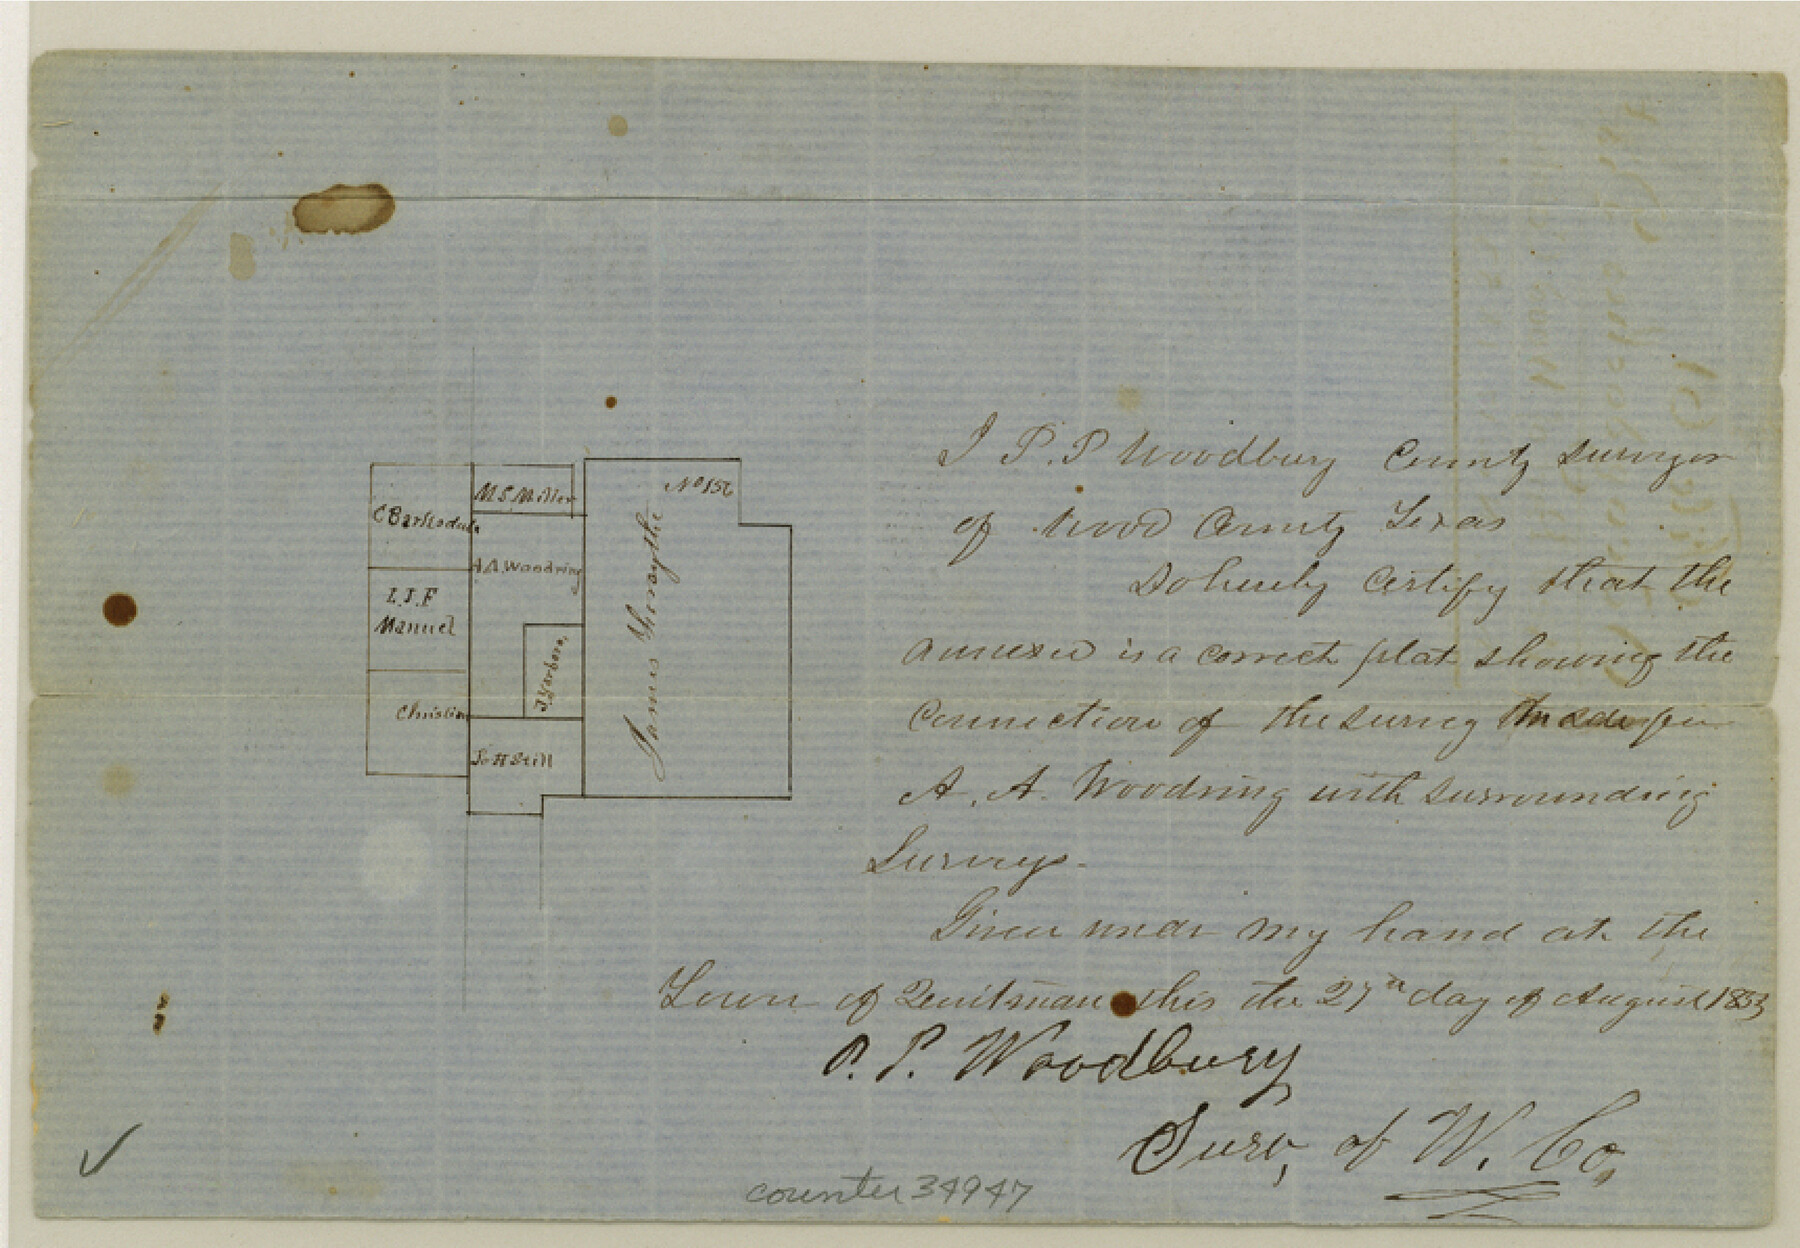 M.S. Miller
No 156
C Barksdale
A A. Woodring
I. J. F
Manuel
J. Yarboro,
James
Christian
I P. P Woodbury County Surveyor
of Wood County Texas
Do hereby Certify that the
annexed is a correct plat showing the
Connection of the survey made for
A. A. Woodring with surrounding
Surveys.
Given under my hand at the
Town of Quitman this the 27th day of August 1853
P. P. Woodbury
Surv, of W. Co,
counter 34947